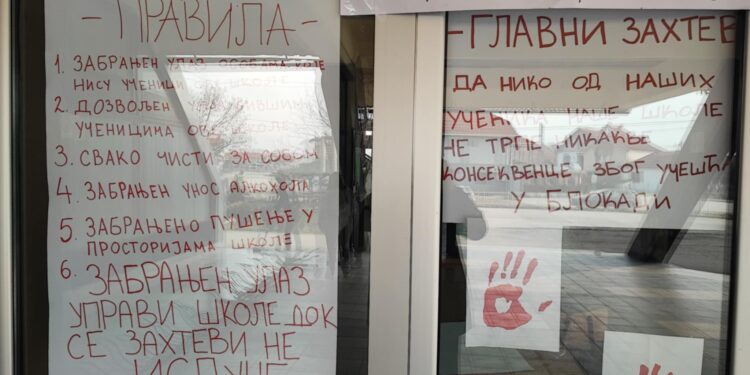 -ПРАВИЛА-
1. ЗАБРАЊЕН УЛАЗ ОСОБАМА КОЈЕ
НИСУ УЧЕНИЦИ ОВЕ ШКОЛЕ
2. ДОЗВОЉЕН УЛАЗ БИВШИМ
УЧЕНИЦИМА ОВЕ ШКОЛЕ
3. СВАКО ЧИСТИ ЗА СОБОМ
4. ЗАБРАЊЕН УНОС АЛКОХОЛА
5. ЗАБРАЊЕНО ПУШЕЊЕ У
ПРОСТОРИЈАМА ШКОЛЕ
6. ЗАБРАЊЕН УЛАЗ
УПРАВИ ШКОЛЕ ДОК
СЕ ЗАХТЕВИ НЕ
-ГЛАВНИ ЗАХТЕВ
ДА НИКО ОД НАШИХ
УЧЕНИКА НАШЕ ШКОЛЕ
НЕ ТРПЕ НИКАКВЕ
КОНСЕКВЕНЦЕ ЗБОГ УЧЕШЋА
У БЛОКАДИ